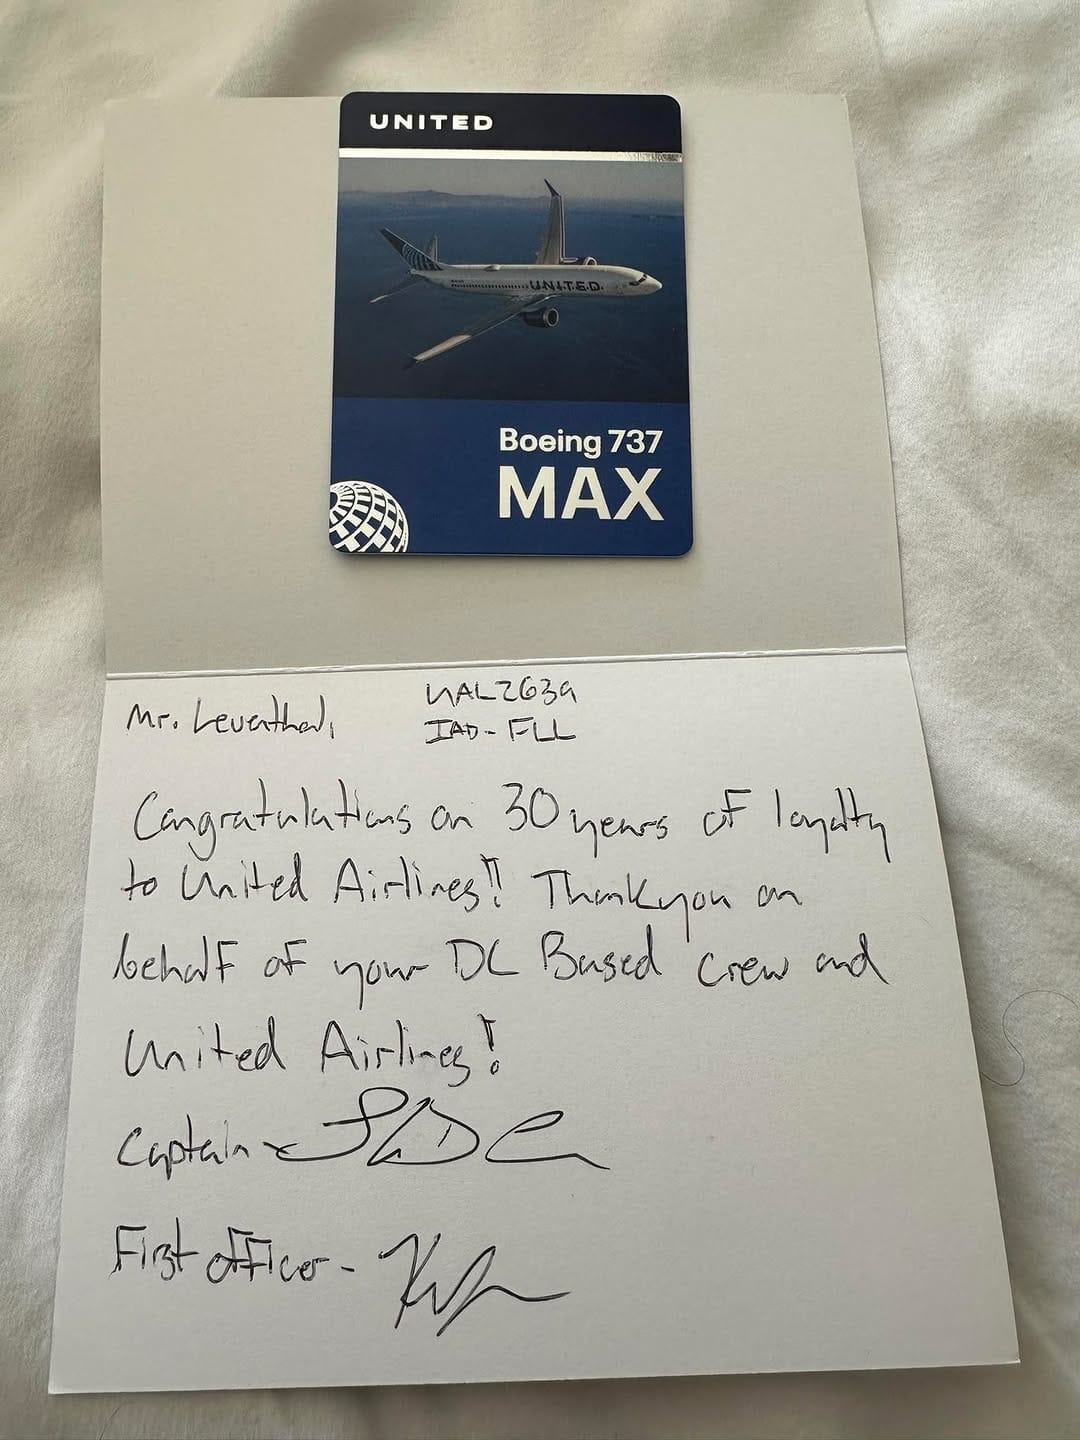 UNITED
UNITED
Boeing 737
MAX
Mr. Leventhal,
UAL2639
IAD-FLL
Congratulations on 30 years of loyalty
to United Airlines!! Thank you on
behalf of your DC Based crew and
United Airlines!
Captain -
First officer -